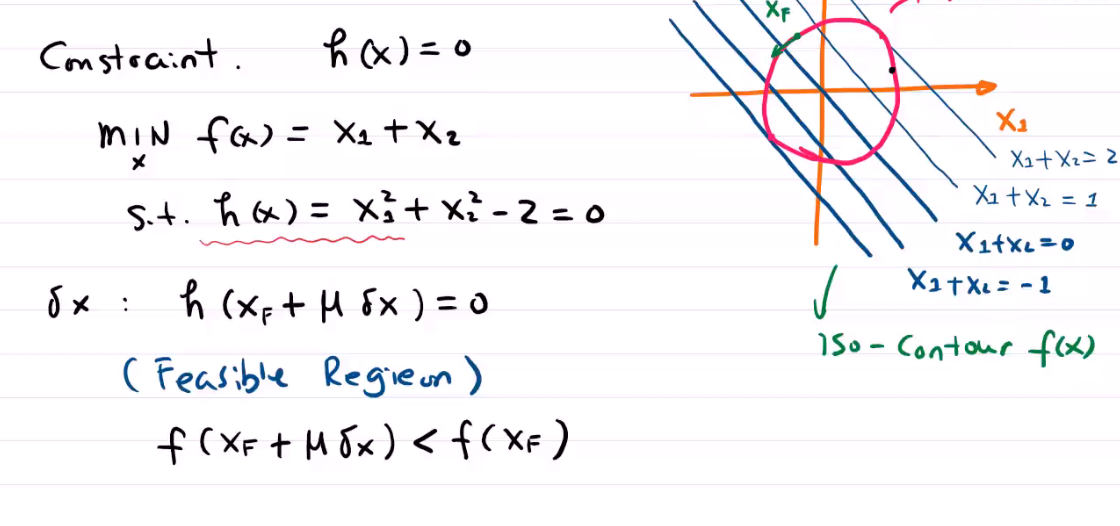 Constraint. h(x) = 0
min f(x) = x1 + x2
x
s.t. h(x) = x1² + x2² - 2 = 0
δx : h(xF + μ δx) = 0
(Feasible Regieon)
f(xF + μ δx) < f(xF)
xF
x1
x1 + x2 = 2
x1 + x2 = 1
x1 + x2 = 0
x1 + x2 = -1
Iso - Contour f(x)